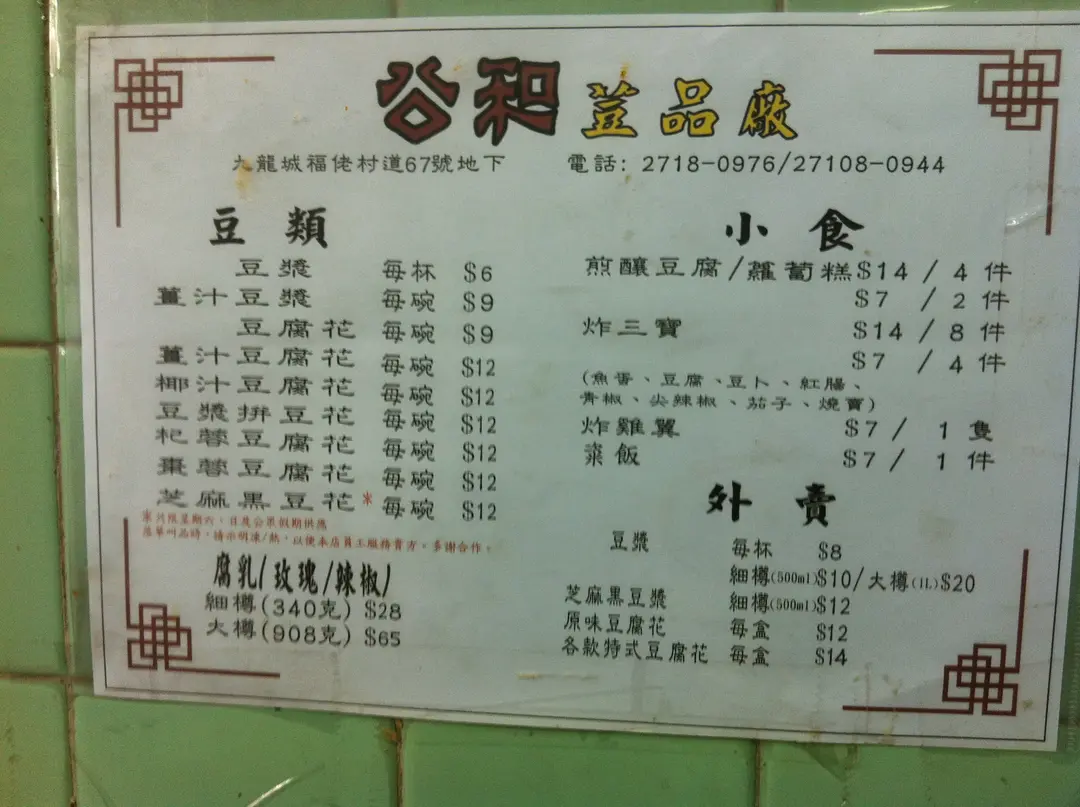 公和荳品廠
九龍城福佬村道67號地下 電話: 2718-0976/27108-0944
豆類
豆漿 每杯 $6
薑汁豆漿 每碗 $9
豆腐花 每碗 $9
薑汁豆腐花 每碗 $12
椰汁豆腐花 每碗 $12
豆漿拼豆花 每碗 $12
杞蓉豆腐花 每碗 $12
棗蓉豆腐花 每碗 $12
芝麻黑豆花* 每碗 $12
※只限星期六,日及公眾假期供應
落單叫品時,請示明凍/熱,以便本店員工服務貴方。多謝合作。
腐乳(玫瑰/辣椒)
細樽(340克) $28
大樽(908克) $65
小食
煎釀豆腐/蘿蔔糕 $14 / 4 件
$7 / 2 件
炸三寶 $14 / 8 件
$7 / 4 件
(魚蛋、豆腐、豆卜、紅腸、
青椒、尖辣椒、茄子、燒賣)
炸雞翼 $7 / 1 隻
粢飯 $7 / 1 件
外賣
豆漿 每杯 $8
細樽(500ml)$10/大樽(1L)$20
芝麻黑豆漿 細樽(500ml)$12
原味豆腐花 每盒 $12
各款特式豆腐花 每盒 $14